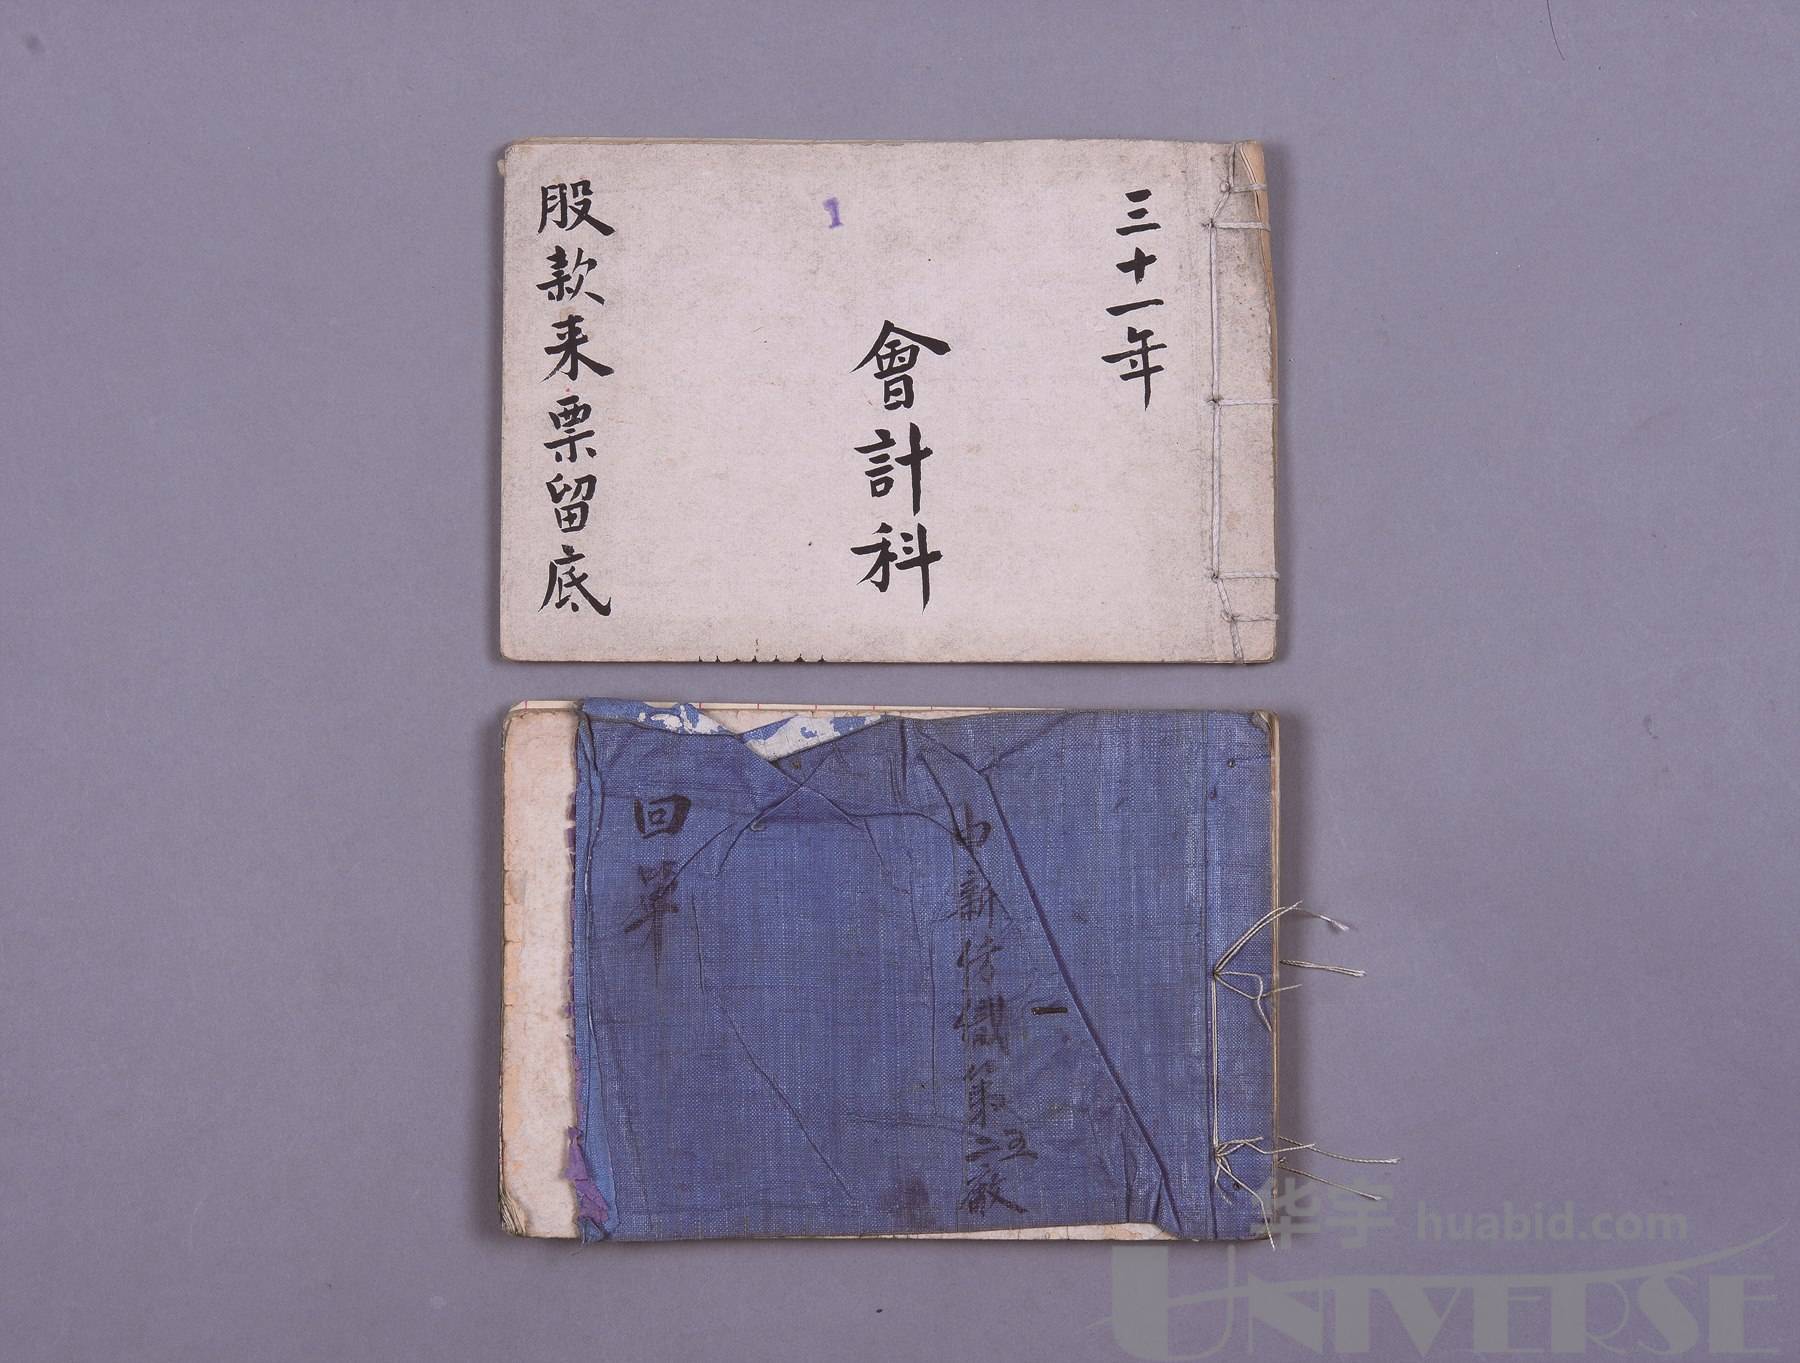 三十一年
1
會計科
股款来票留底
申新紡織第二五廠
一
回单
华宇 huabid.com
UNIVERSE